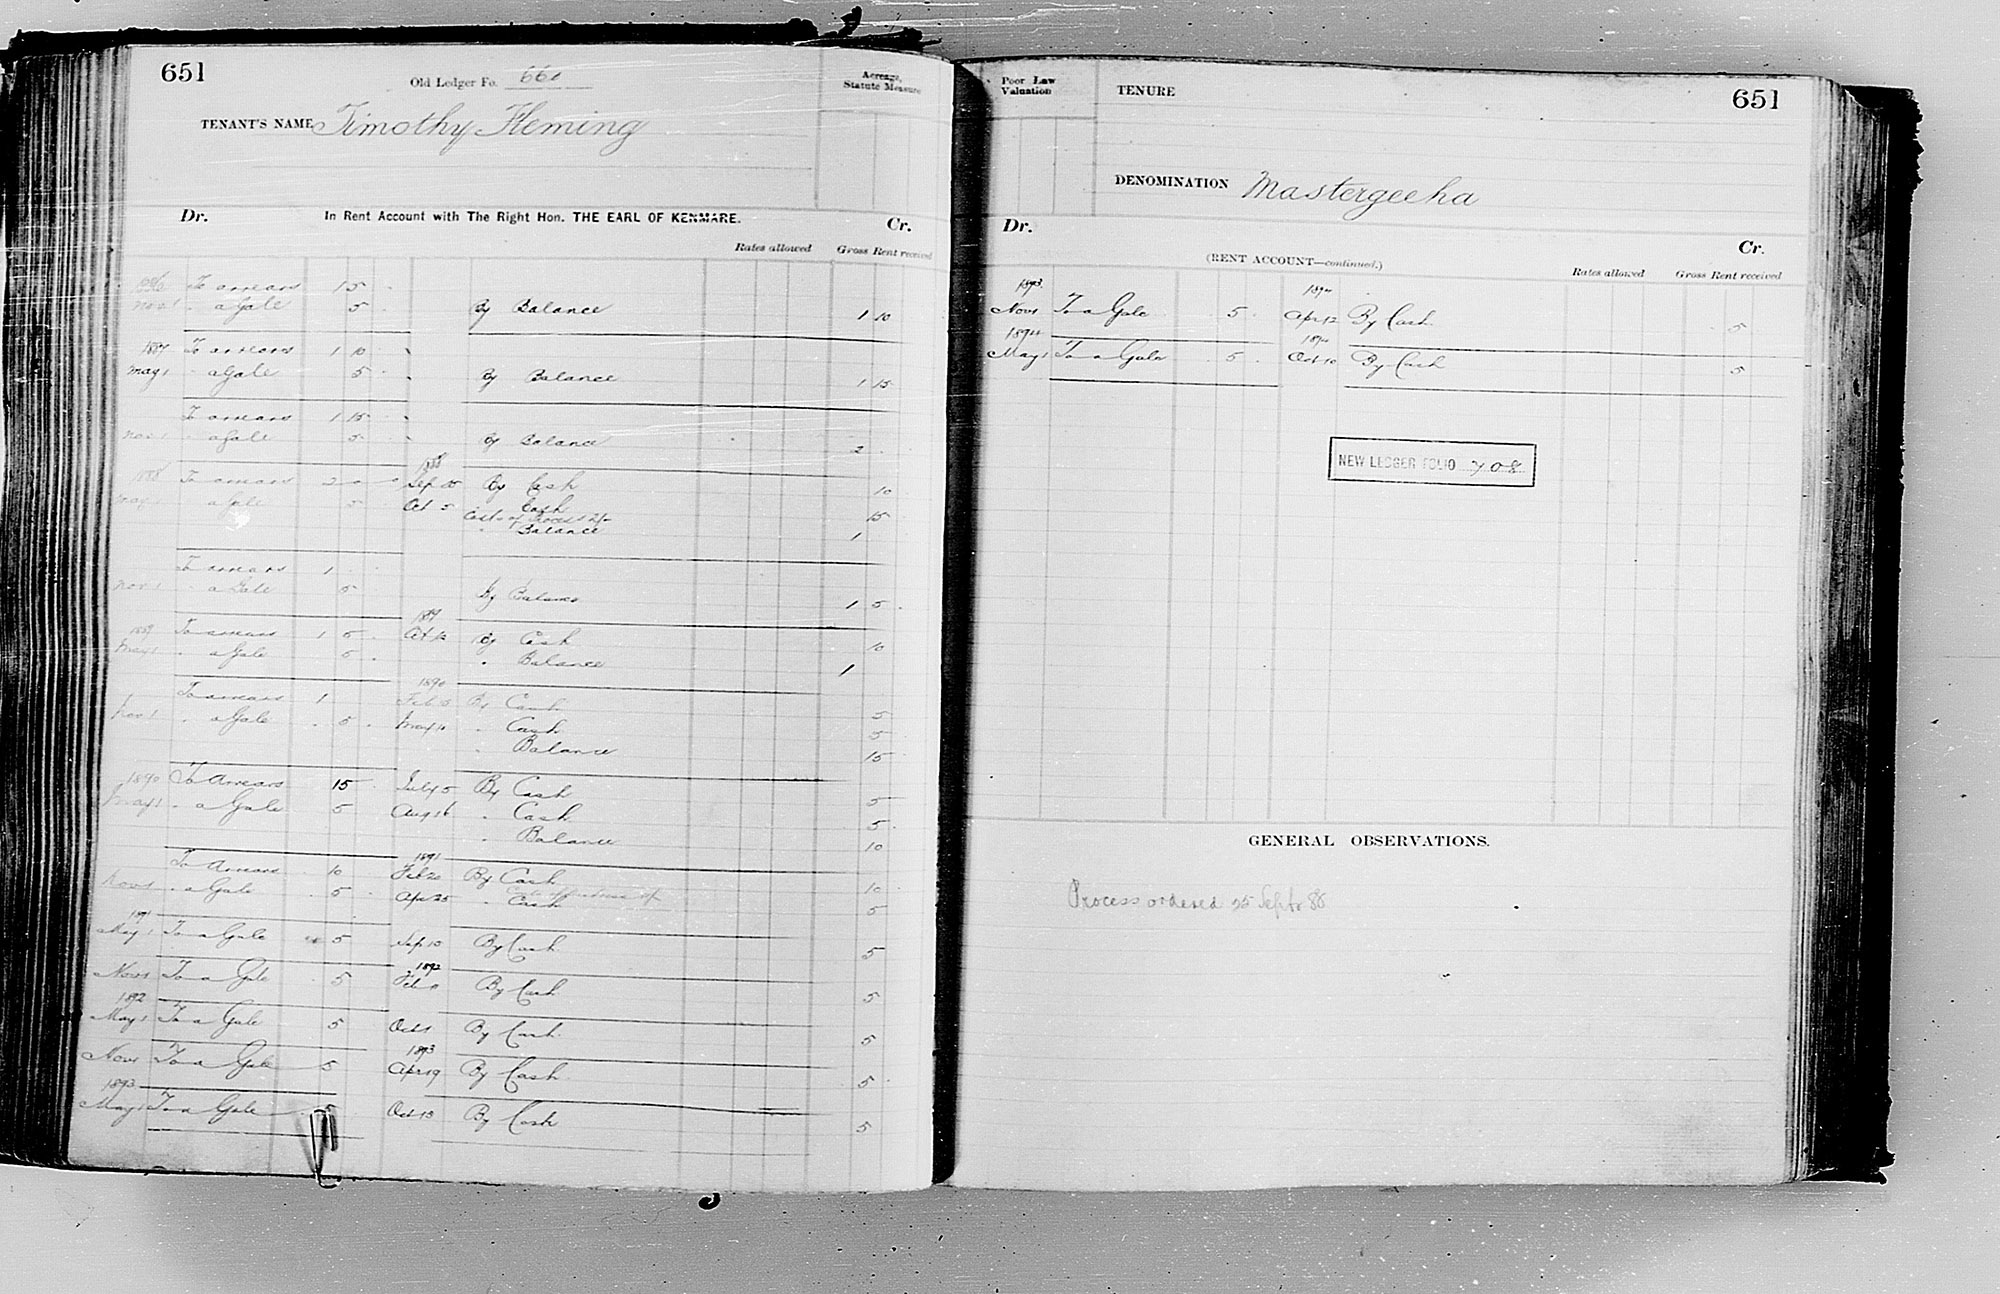 651
Old Ledger Fo. 661
Acreage,
Statute Measure
TENANT'S NAME Timothy Fleming
Dr. In Rent Account with The Right Hon. THE EARL OF KENMARE. Cr.
Rates allowed Gross Rent received
1886 To arrears 1 5
Nov 1 " a Gale 5 By Balance 1 10
1887 To arrears 1 10
May 1 " a Gale 5 By Balance 1 15
To arrears 1 15
Nov 1 " a Gale 5 By Balance 2
1888
1888 To arrears 2 0 0 Sep By Cash 10
May 1 " a Gale 5 Oct 5 " Cash 15
Costs of Process 2/-
" Balance 1
To arrears 1
Nov 1 " a Gale 5 By Balance 1 5
1889
1889 To arrears 1 5 Oct 12 By Cash 10
May 1 " a Gale 5 " Balance 1
1890
To arrears 1 Feb By Cash 5
Nov 1 " a Gale 5 May 11 " Cash 5
" Balance 15
1890 To Arrears 15 July 5 By Cash 5
May 1 " a Gale 5 Aug 16 " Cash 5
" Balance 10
1891
To Arrears 10 Feb 20 By Cash 10
Nov 1 " a Gale 5 Apr 25 " Cash 5
1891
May 1 To a Gale 5 Sep 10 By Cash 5
1892
Nov 1 To a Gale 5 Feb 11 By Cash 5
1892
May 1 To a Gale 5 Oct 1 By Cash 5
1893
Nov 1 To a Gale 5 Apr 19 By Cash 5
1893
May 1 To a Gale 5 Oct 13 By Cash 5
Poor Law
Valuation
TENURE
651
DENOMINATION Mastergeeha
Dr. Cr.
(RENT ACCOUNT—continued.)
Rates allowed Gross Rent received
1893 1894
Nov 1 To a Gale 5 Apr 12 By Cash 5
1894 1894
May 1 To a Gale 5 Oct 10 By Cash 5
NEW LEDGER FOLIO 708
GENERAL OBSERVATIONS.
Process ordered 25 Septr 88